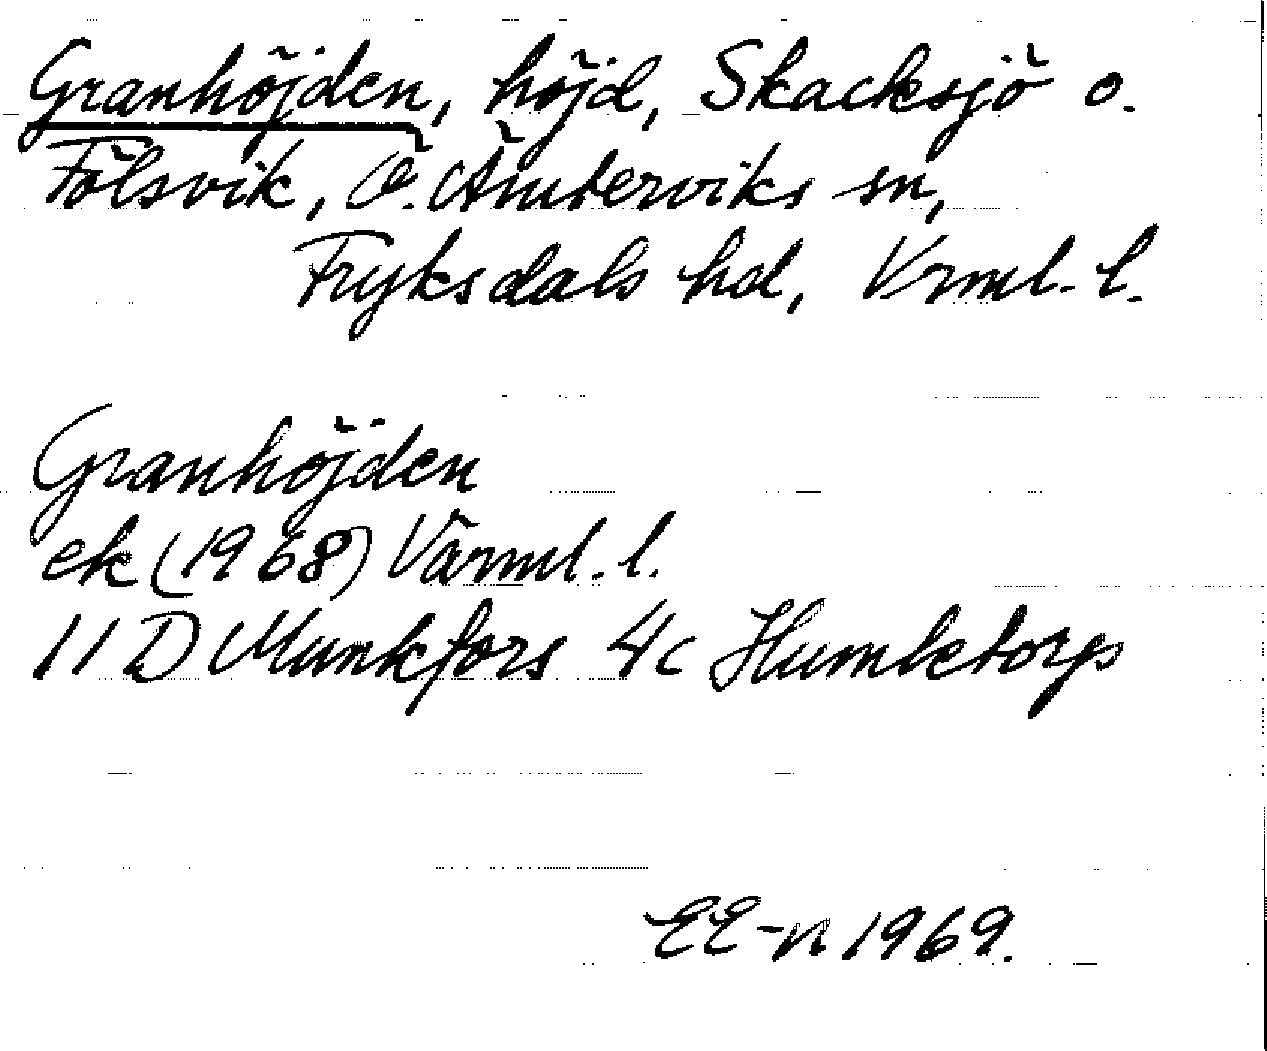 Granhöjden, höjd, Skacksjö o.
Fölsvik, Ö. Ämterviks sn,
Fryksdals hd, Vrml. l.
Granhöjden
ek (1968) Värml. l.
11 D Munkfors 4c Humletorp
EE-n 1969.